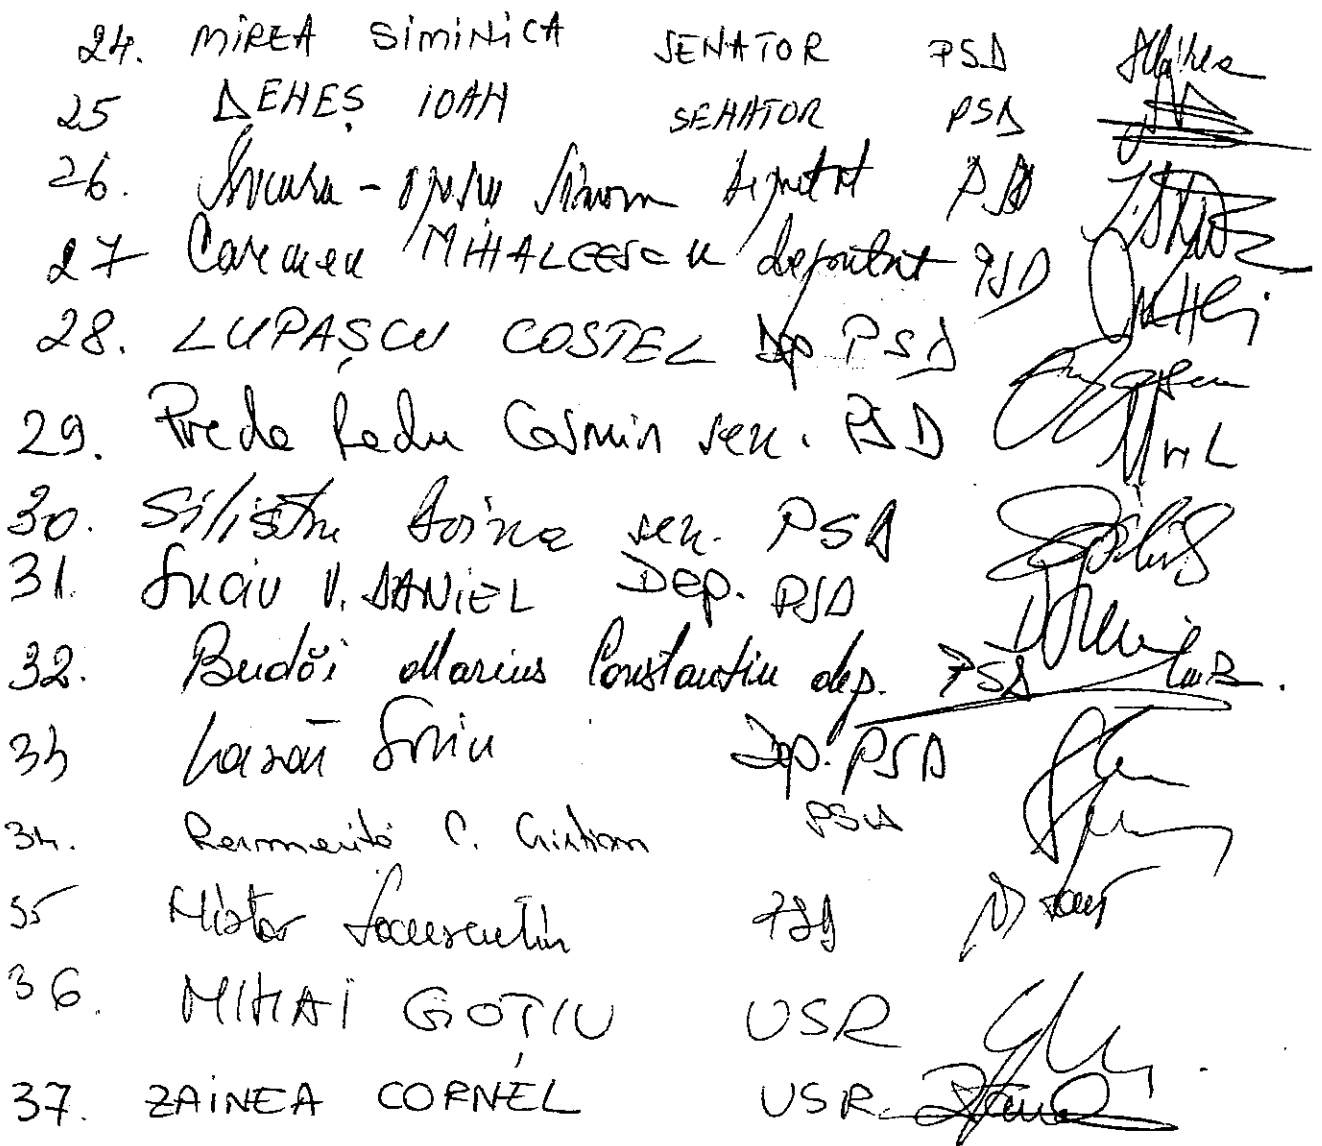 24. MIREA SIMINICA SENATOR PSD
25 DENEȘ IOAN SENATOR PSD
26. deputat PSD
27 Carmen MIHALCESCU deputat PSD
28. LUPAȘCU COSTEL Dep PSD
29. Preda Radu Cosmin sen. PSD
30. Silistru Doina sen. PSD
31. Suciu V. DANIEL Dep. PSD
32. Budăi Marius Constantin dep. PSD
33 Lazăr Sorin Dep. PSD
34. C. Cristian PSD
35 Nistor Laurentiu PSD
36. MIHAI GOȚIU USR
37. ZAINEA CORNEL USR